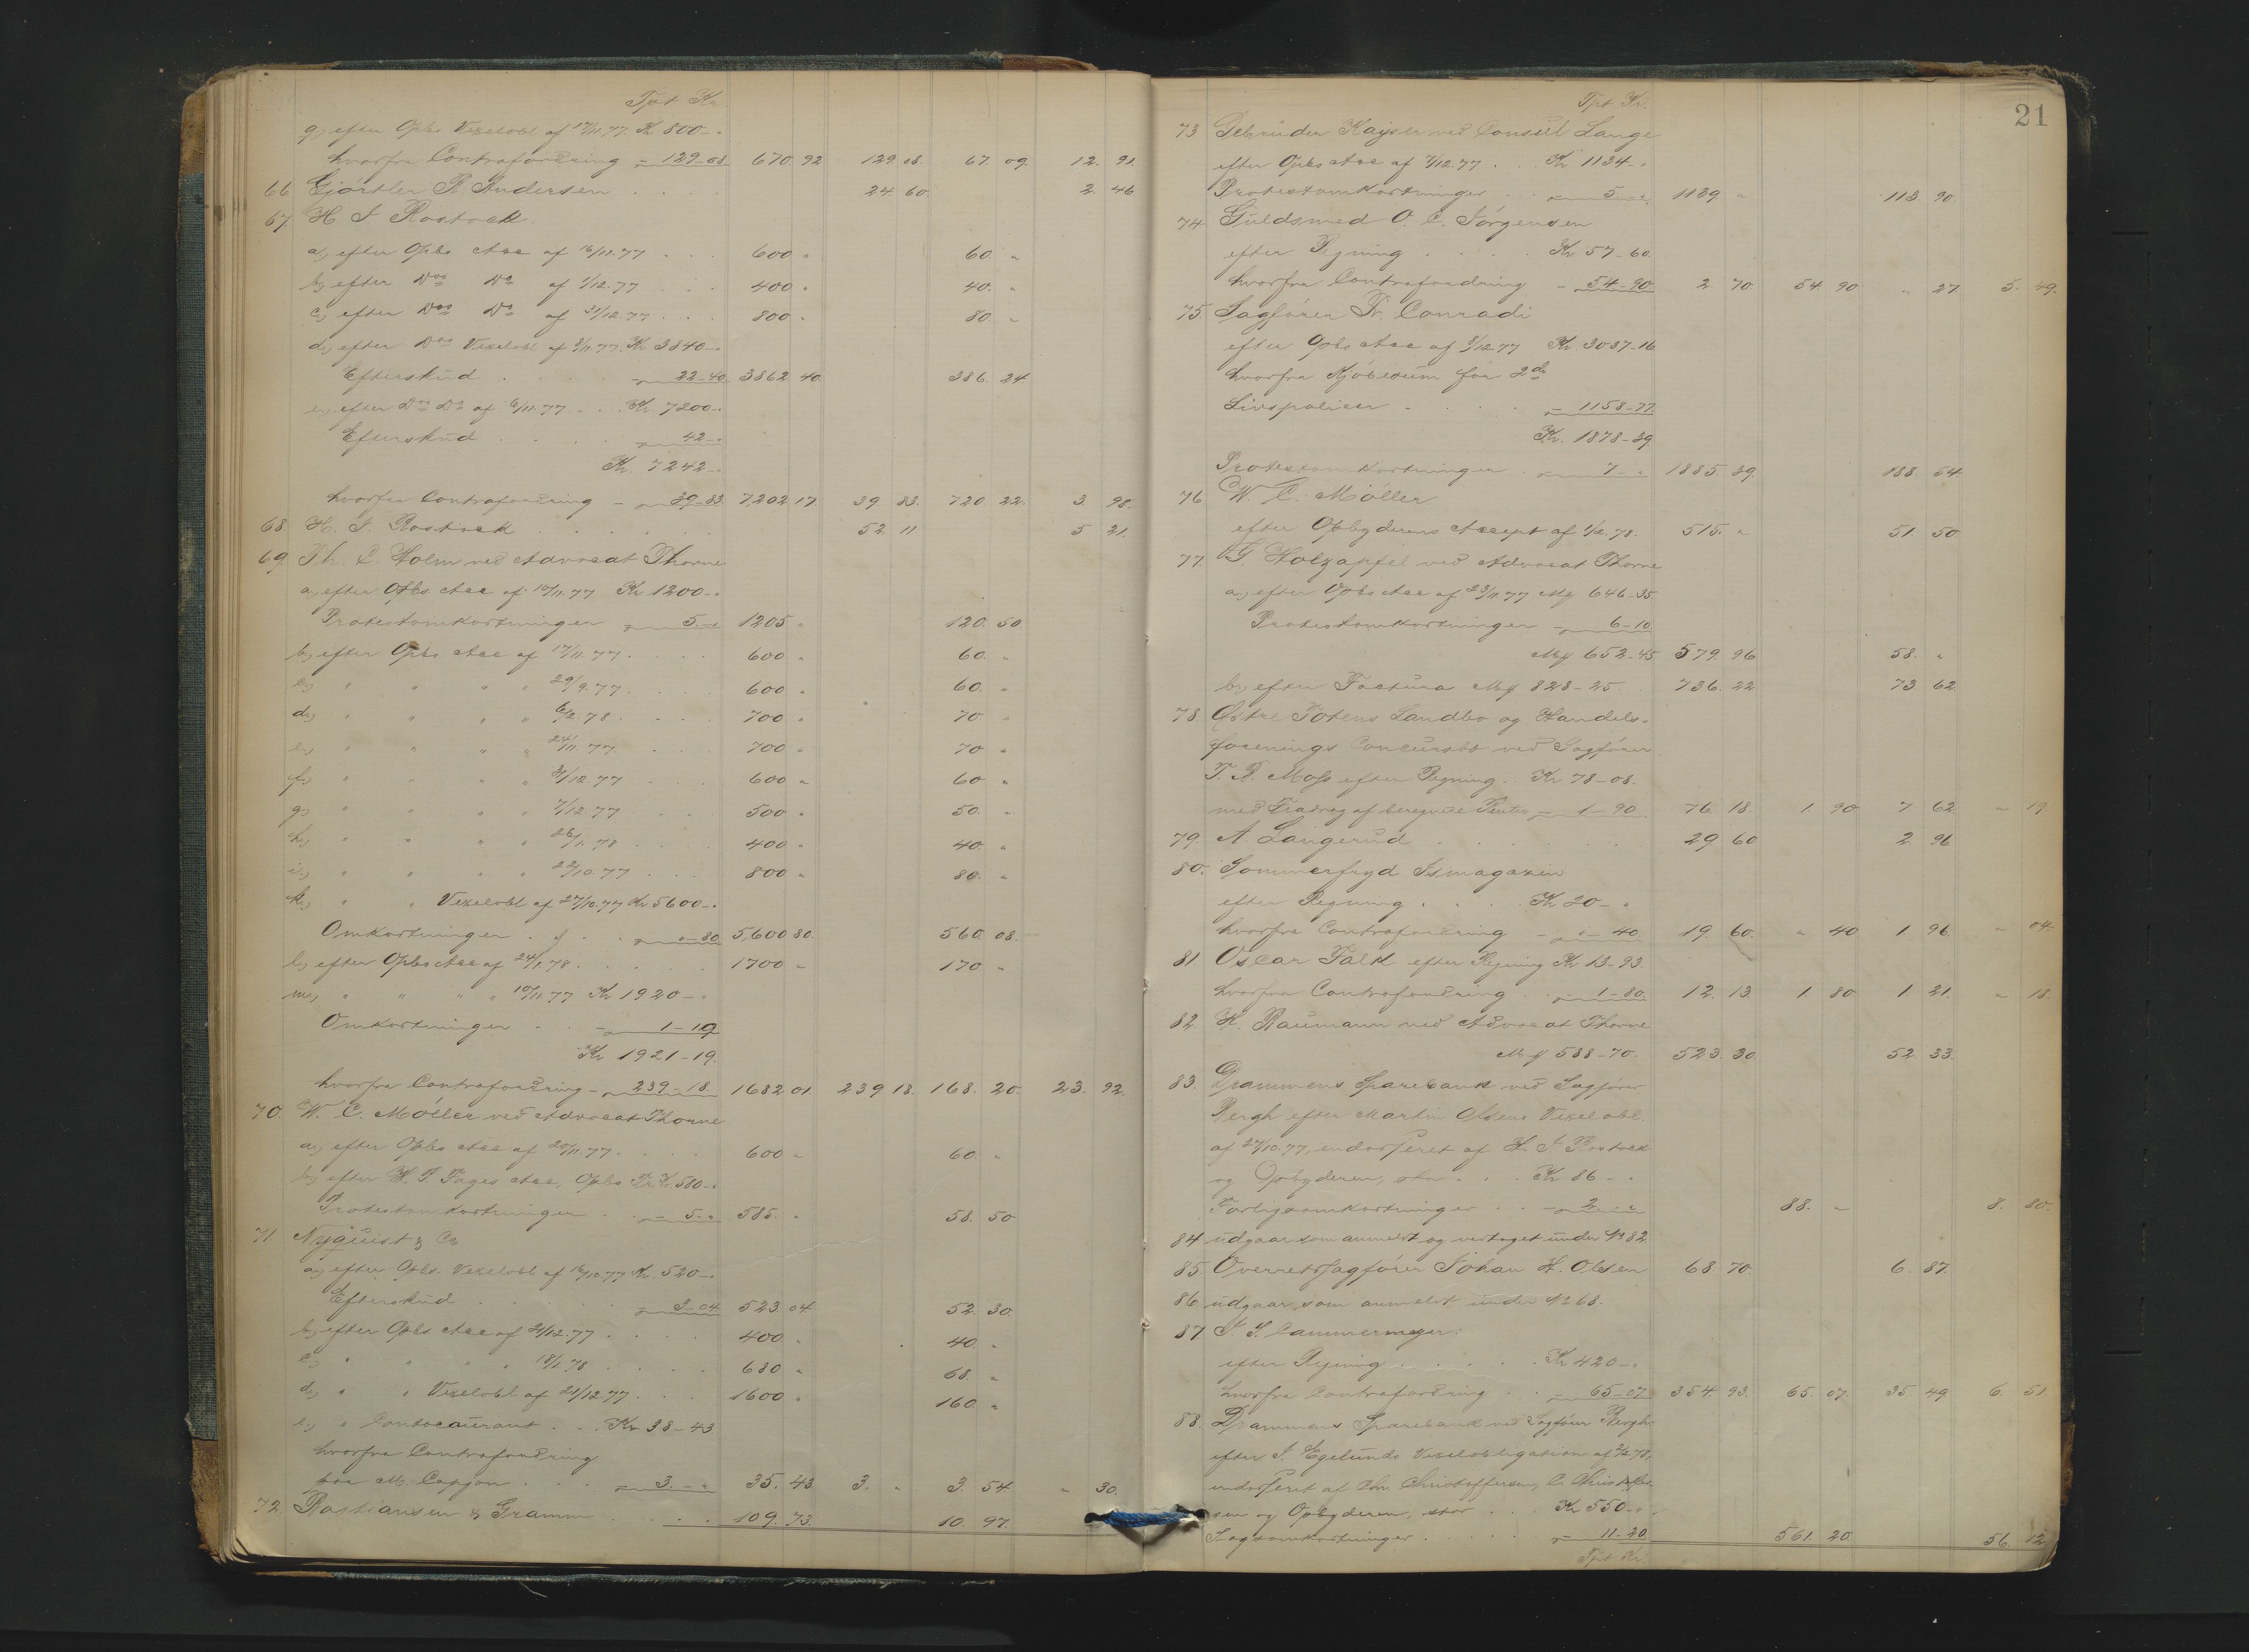 Tpt Kr.
g, efter Opbs Vexelobl af 17/11.77. Kr 800-"
hvorfra Contrafordring = 129-08. 670 92 129 08. 67. 09. 12. 91.
66 Gjörtler R. Andersen 24 60. 2. 46
67. H. J. Rostock
a, efter Opbs Acc af 16/11.77 600 " 60. "
b, efter Dos Do af 1/12.77 400 " 40. "
c, efter Dos Do af 31/12.77 800 " 80. "
d, efter Dos Vexelobl af 3/11.77. Kr 3840-"
Efterskud 22-40. 3862 40. 386. 24
e, efter Dos Do af 6/11.77 Kr 7200-"
Efterskud 42-"
Kr. 7242-"
hvorfra Contrafordring - 39-83 7,202 17 39 83. 720. 22. 3. 98.
68 H. J. Rostock 52. 11 5 21.
69. Th. C. Holm ved Advocat Thorne
a, efter Opbs. Acc af 10/11.77 Kr 1200-"
Protestomkostninger 5-" 1205 " 120. 50
b, efter Opbs Acc af 17/11.77. 600 " 60. "
c, " " " " 29/9.77. 600 " 60. "
d, " " " " 6/2.78. 700 " 70 "
e, " " " " 24/11.77 700 " 70 "
f, " " " " 31/12.77 600 " 60 "
g, " " " " 7/12.77 500 " 50. "
h, " " " " 26/1.78 400 " 40. "
i, " " " " 22/10.77 800 " 80. "
k, " " Vexelobl af 27/10.77 Kr 5600-"
Omkostninger "-80 5,600 80. 560. 08.
l, efter Opbs Acc af 24/1.78. 1700 " 170 "
m, " " " " 10/11.77 Kr 1920-"
Omkostninger 1-19
Kr 1921-19.
hvorfra Contrafordring - 239-18. 1682 01. 239 18. 168. 20. 23. 92.
70. W. C. Möller ved Advocat Thorne
a, efter Opbs Acc af 20/11.77. 600 " 60. "
b, efter H. P. Fages Acc, Opbs Tr. Kr 580-"
Protestomkostninger 5-" 585. " 58. 50
71. Nyquist & Co
a, efter Opbs. Vexelobl af 16/10.77 Kr. 520-"
Efterskud 3-04 523. 04. 52. 30.
b, efter Opbs. Acc af 21/12.77 400. " 40. "
c, " " " " 18/1.78 680 " 68. "
d, " " Vexelobl af 21/12.77. 1600 " 160. "
e, " Contocourant Kr 38-43
hvorfra Contrafordring
paa M. Capjon 3.-" 35. 43. 3. " 3. 54. " 30.
72. Bastiansen & Gramm 109. 73. 10. 97.
21
Tpt Kr.
73 Gebrüder Kayser ved Consul Lange
efter Opbs Acc af 7/12.77 Kr. 1134-"
Protestomkostninger 5-" 1139. " 113. 90.
74 Guldsmed O. C. Jörgensen
efter Regning Kr 57-60.
hvorfra Contrafordring - 54-90. 2. 70. 54. 90 " 27. 5. 49.
75. Sagförer Fr. Conradi
efter Opbs Acc af 3/12.77 Kr. 3037-16
hvorfra Kjöbesum for 2de
Livspolicer - 1158-77.
Kr. 1878-39.
Protestomkostninger 7-" 1885. 39. 188. 54.
76 W. C. Möller
efter Opbyderens Accept af 1/2.78. 515. " 51 50.
77. G. Holzapfel ved Advocat Thorne
a, efter Opbs Acc af 23/11.77 Mf 646-35.
Protestomkostninger - 6-10.
Mf 652-45 579. 96 58. "
b, efter Factura Mf 828-25. 736. 22 73 62
78 Östre Totens Landbo og Handels-
forenings Concursbo ved Sagförer
T. R. Moss efter Regning. Kr 78-08.
med Fradrag af beregnede Renter - 1-90. 76. 18. 1 90 7 62 " 19
79. A. Langerud 29. 60 2. 96
80. Sommerfryd Ismagazin
efter Regning Kr 20-"
hvorfra Contrafordring - "-40. 19. 60. " 40. 1 96. " 04.
81 Oscar Falk efter Regning Kr 13-93
hvorfra Contrafordring 1-80. 12. 13. 1. 80. 1. 21. " 18.
82 H. Baumann ved Advocat Thorne
Mf 588-70. 523. 30. 52. 33.
83. Drammens Sparebank ved Sagförer
Bergh efter Martin Olsens Vexelobl.
af 27/10.77, endosseret af H. J. Rostock
og Opbyderen, stor Kr 86-"
Forligsomkostninger - 2-" 88. " 8. 80.
84 udgaar som anmeldt og vedtaget under No 82.
85. Overretssagförer Johan H. Olsen 68 70. 6. 87.
86 udgaar, som anmeldt under No 68.
87. J. S. Cammermeyer:
efter Regning Kr 420-"
hvorfra Contrafordring - 65-07 354. 93. 65. 07. 35 49 6. 51.
88. Drammens Sparebank ved Sagförer Bergh
efter J. Egelunds Vexelobligation af 2/2.78,
endosseret af Chr. Christoffersen, C. Christoffer-
sen og Opbyderen, stor Kr 550-"
Sagsomkostninger - 11-20. 561. 20. 56. 12.
Tpt Kr.